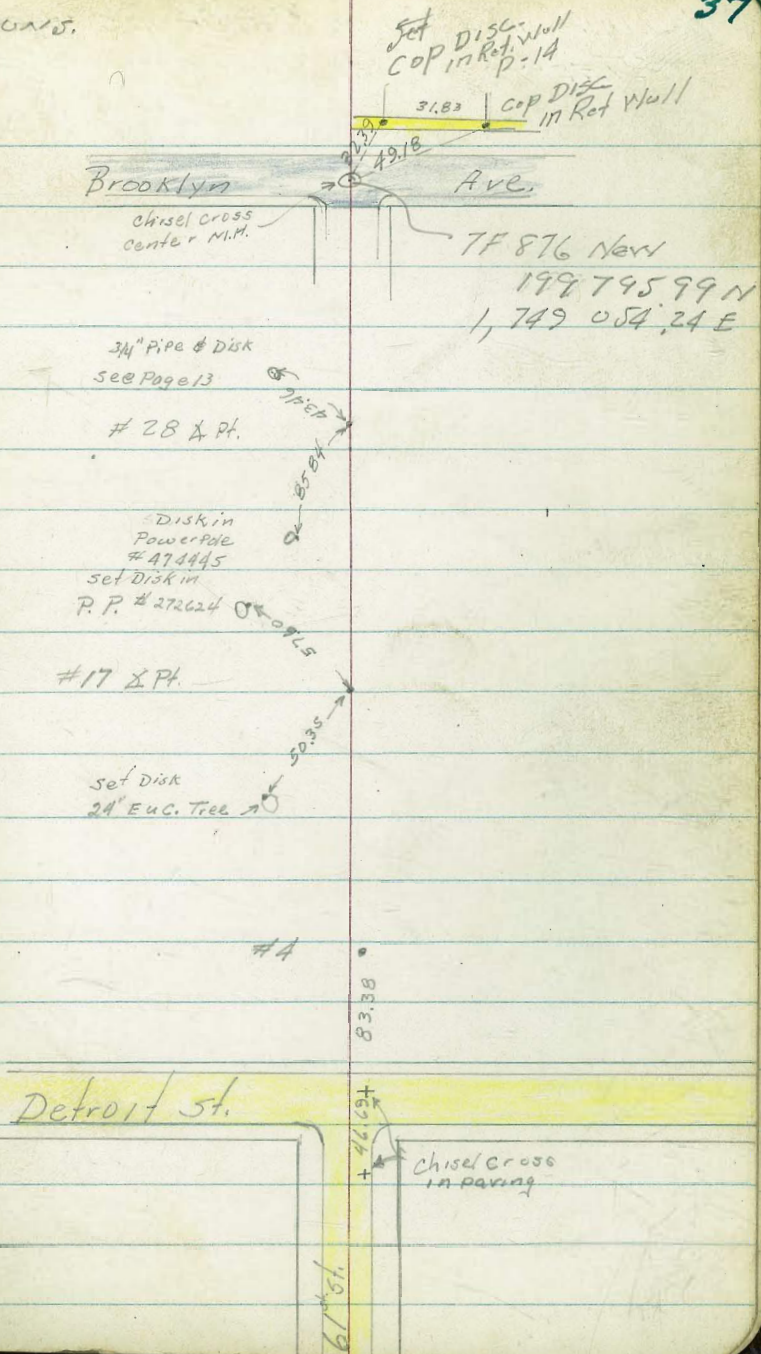 37
Set
Cop Disc.
in Ret. Wall
P-14
31.83
Cop Disc
in Ret Wall
32.39
49.18
Brooklyn Ave.
chisel cross
center M.H.
7F 876 New
199 795.99 N
1,749 054.24 E
3/4" Pipe & Disk
see Page 13
# 28 ∡ Pt.
85.84
Disk in
Power Pole
# 474445
set Disk in
P. P. # 272624
57.60
#17 ∡ Pt.
50.35
set Disk
24" Euc. Tree
#4
83.38
Detroit St.
46.69
chisel cross
in paving
61st St.